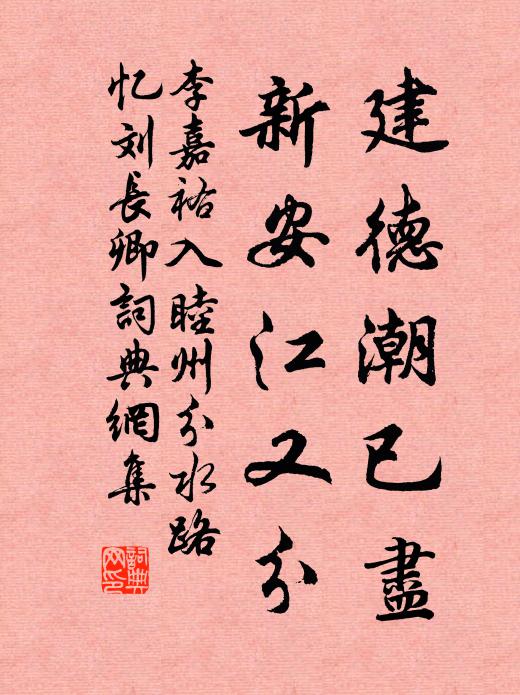 建德潮已盡
新安江又分
李嘉祐入睦州分水路
忆刘長卿詞典網集
詞典網印